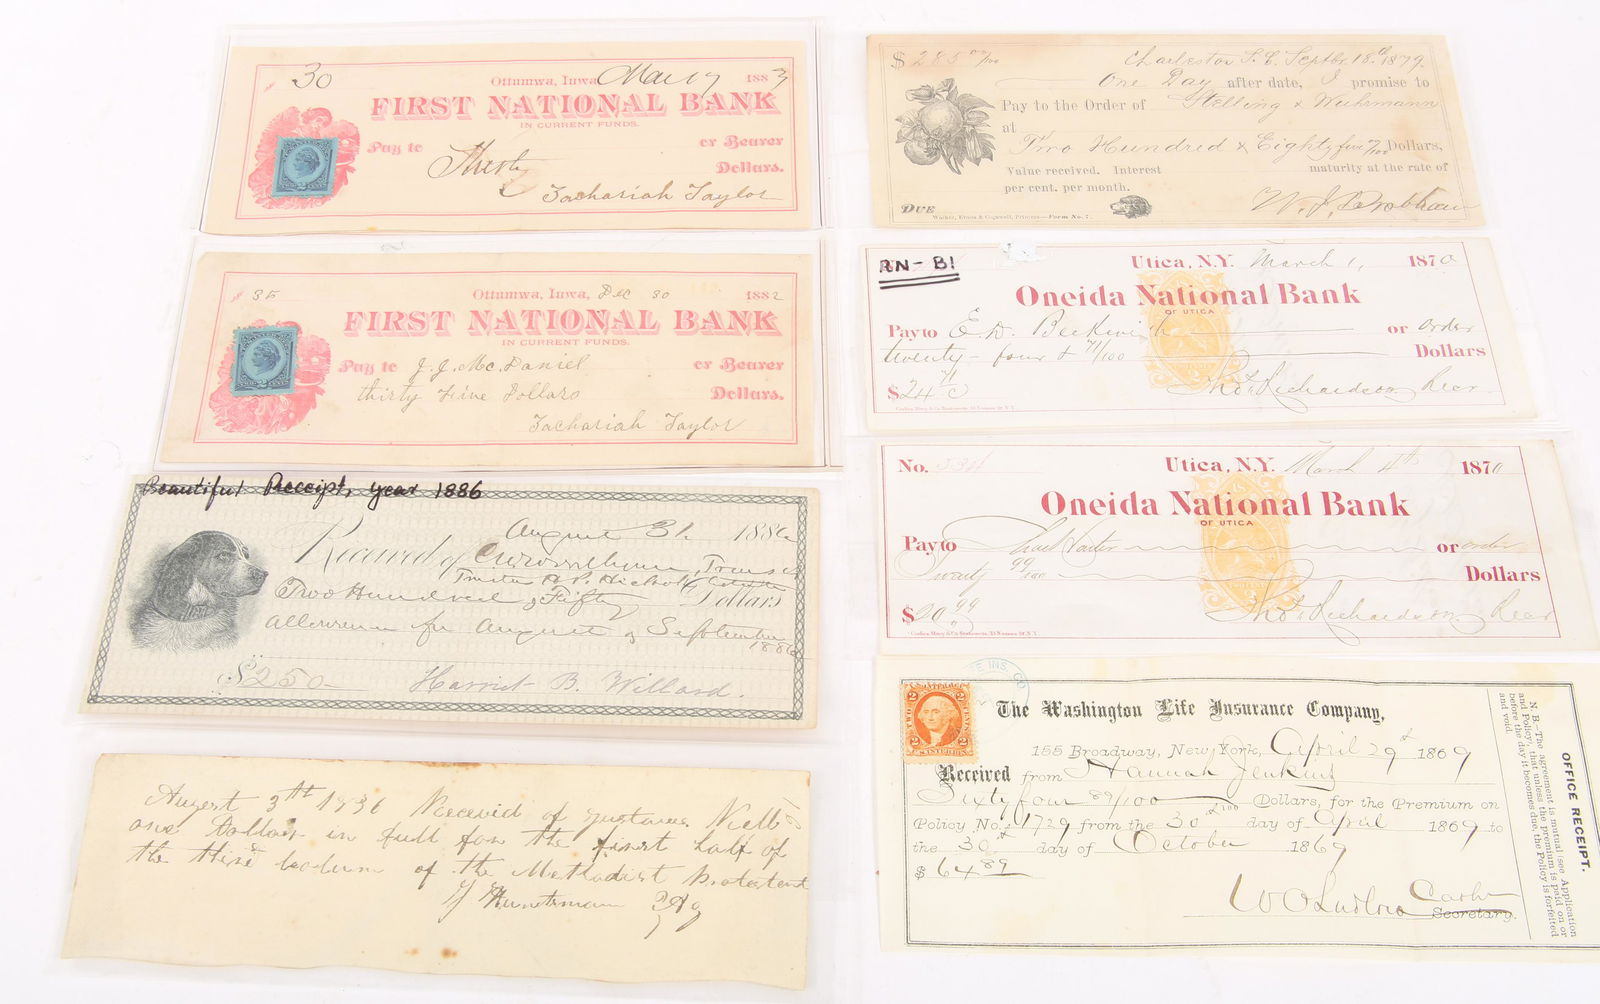 30
Ottumwa, Iowa, Mar 17 1883
FIRST NATIONAL BANK
IN CURRENT FUNDS.
Pay to Thirty or Bearer
Dollars.
Zachariah Taylor
35
Ottumwa, Iowa, Dec 30 1882
FIRST NATIONAL BANK
IN CURRENT FUNDS.
Pay to J. J. Mc. Daniel or Bearer
thirty Five Dollars Dollars.
Zachariah Taylor
Beautiful Receipt, year 1886
August 31. 1886
Received of
Two Hundred & Fifty Dollars
allowance for August & September
1886
$250
Harriet B. Willard.
August 3th 1836 Received of
one Dollar in full for the first half of
the third of the Methodist Protestent
$285 00/100 Charleston S. C. Septbr. 18th 1879
One Day after date, I promise to
Pay to the Order of Stelling & Weuhrmann
at
Two Hundred & Eighty five Dollars,
Value received. Interest maturity at the rate of
per cent. per month.
DUE
Walker, Evans & Cogswell, Printers—Form No. 7.
RN-B1
Utica, N.Y. March 1, 1870
Oneida National Bank
OF UTICA
Pay to E. D. Beckwith or order
twenty-four & 71/100 Dollars
$24 71
Thos. Richardson Recr
No. 534
Utica, N.Y. March 4th 1870
Oneida National Bank
OF UTICA
Pay to or order
Twenty 99/100 Dollars
$20.99
Thos. Richardson Recr
The Washington Life Insurance Company,
155 Broadway, New York, April 29 1869
Received from Hannah Jenkins
Sixty four 89/100 Dollars, for the Premium on
Policy No. 1729 from the 30 day of April 1869 to
the 30 day of October 1869
$64 89
Secretary.
N. B.—The agreement is mutual (see Application
and Policy), that unless the premium is paid on or
before the day it becomes due, the Policy is forfeited
and void.
OFFICE RECEIPT.